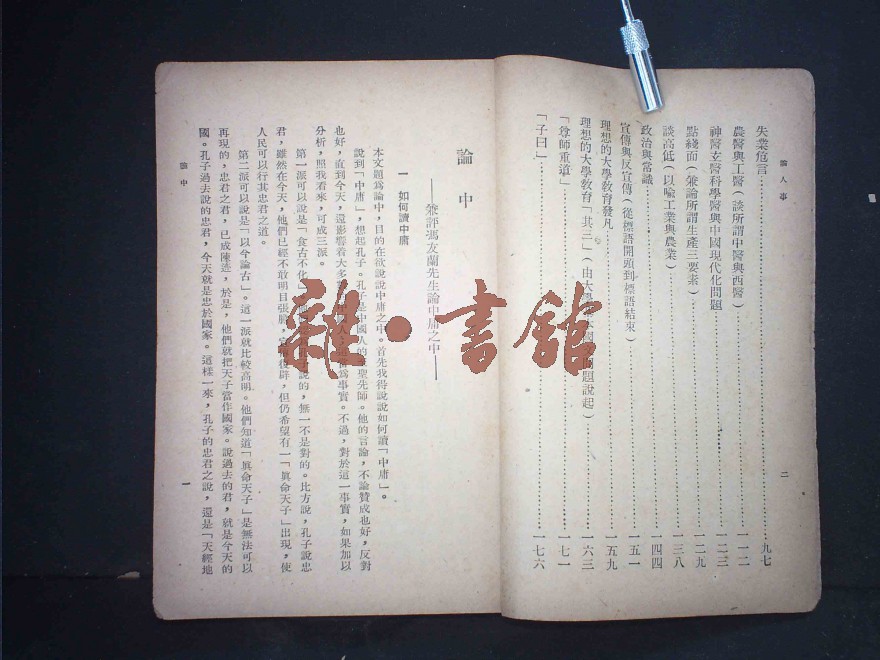 論人事
失業危言……九七
農醫與工醫（談所謂中醫與西醫）……一一二
神醫玄醫科學醫與中國現代化問題……一二三
點綫面（兼論所謂生產三要素）……一二九
談高低（以喩工業與農業）……一三八
政治與常識……一四四
宣傳與反宣傳（從標語開頭到標語結束）……一五一
理想的大學敎育發凡……一五九
理想的大學敎育「其二」（由大學 題說起）……一六三
「尊師重道」……一七一
「子曰」……一七六
二
論中
——兼評馮友蘭先生論中庸之中——
一 如何讀中庸
本文題爲論中，目的在欲說說中庸之中。首先我得說說如何讀「中庸」。
說到「中庸」，想起孔子。孔子是中國人的 聖先師。他的言論，不論贊成也好，反對
也好，直到今天，還影響着大多 事實。不過，對於這一事實，如果加以
分析，照我看來，可成三派。
第一派可以說是「食古不化 說的，無一不是對的。比方說，孔子說忠
君，雖然在今天，他們已經不敢明目張膽， 復辟，但仍希望有一「眞命天子」出現，使
人民可以行其忠君之道。
第二派可以說是「以今論古」。這一派就比較高明。他們知道「眞命天子」是無法可以
再現的，忠君之君，已成陳迹，於是，他們就把天子當作國家。說過去的君，就是今天的
國。孔子過去說的忠君，今天就是忠於國家。這樣一來，孔子的忠君之說，還是「天經地
論中
一
雜·書館